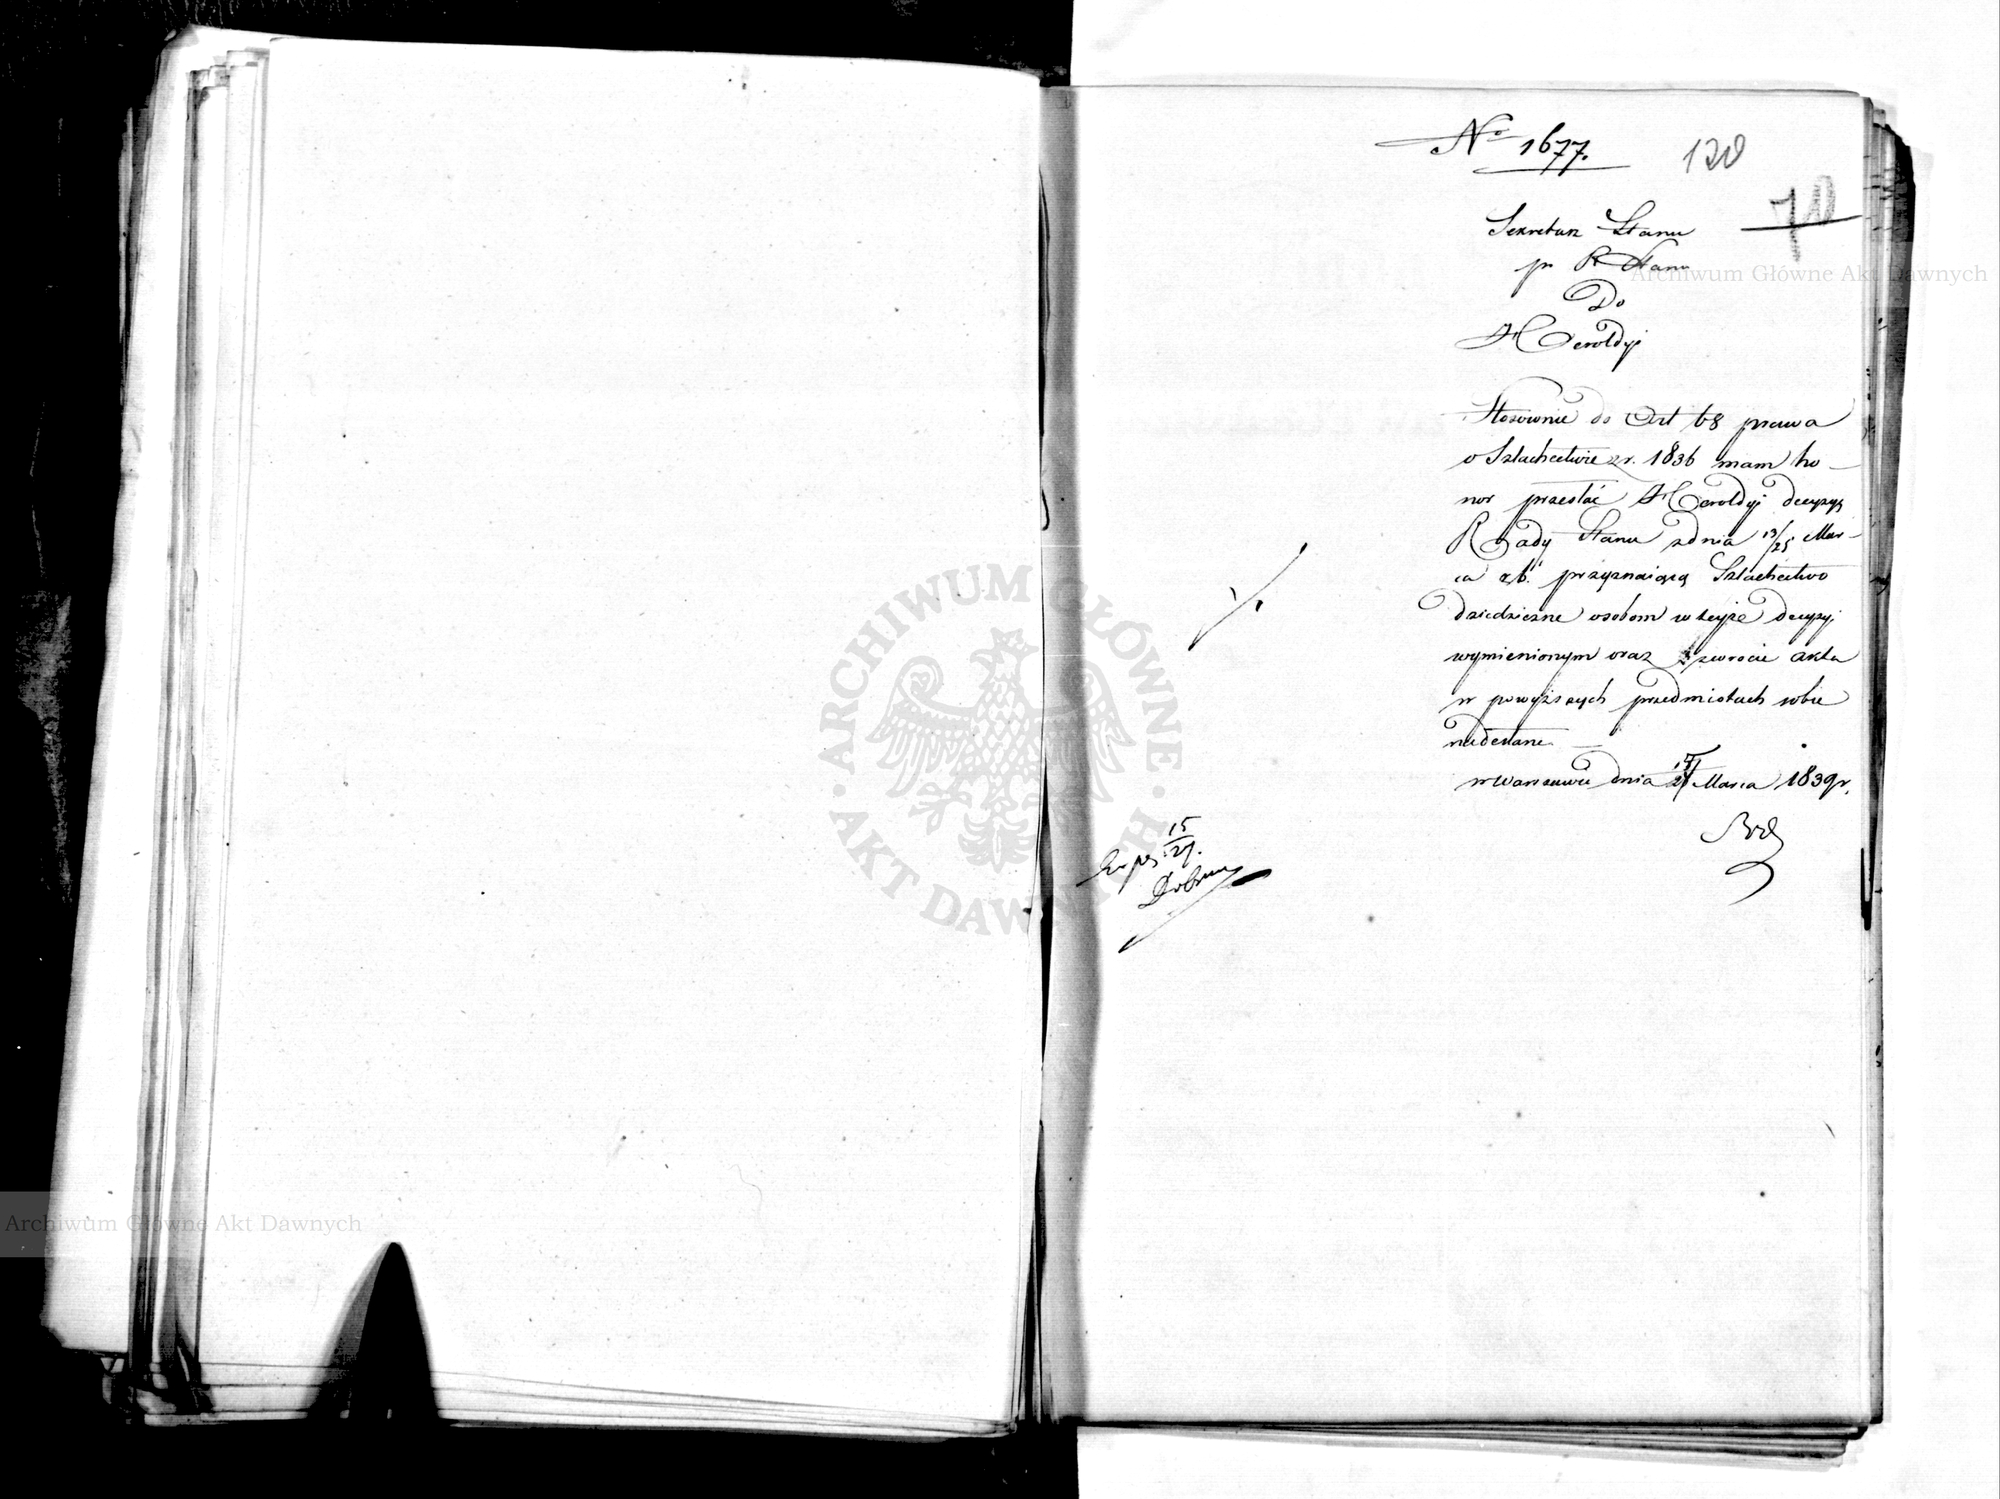 Nº 1677.
120
Sekretarz Stanu
pr R Stanu
Do
Heroldyi
Stosownie do Art 68 prawa
o Szlachectwie z r. 1836 mam ho-
nor przesłać Heroldyi decyzyą
Rady Stanu z dnia 13/25 Mar-
ca r b. przyznaiącą Szlachectwo
dziedziczne osobom w teyże decyzyi
wymienionym oraz zwrócić akta
w powyższych przedmiotach sobie
nadesłane.
w Warszawie dnia Marca 1839 r.
Exped 15/27.
ARCHIWUM GŁÓWNE AKT DAWNYCH
Archiwum Główne Akt Dawnych
Archiwum Główne Akt Dawnych